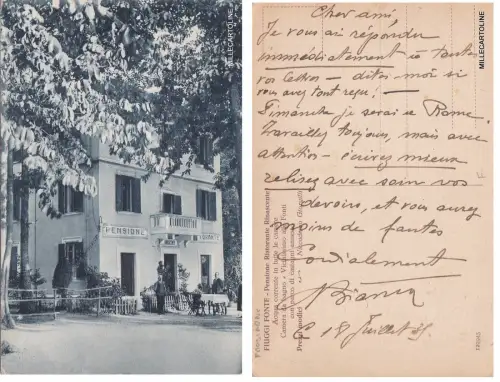 MILLECARTOLINE
PENSIONE
Cher ami
Je vous ai répondu
immédiatement à toutes
vos lettres - dites moi si
vous avez tout reçu! -
Dimanche je serai à Rome.
Travaillez toujours, mais avec
attention - écrivez mieux
relisez avec soin vos
devoirs, et vous aurez
moins de fautes
Cordialement
18 Juillet
MILLECARTOLINE
FIUGGI FONTE - Pensione Ristorante
Acqua corrente in tutte le camere
Camera da bagno - Vicinissimo alle Fonti
Prezzi modici